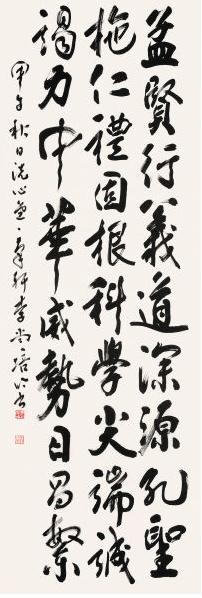 孟賢行義道深源孔聖
施仁禮固根科學尖端誠
竭力中華威勢日昌繁
甲午秋日洗心齋李尚培書